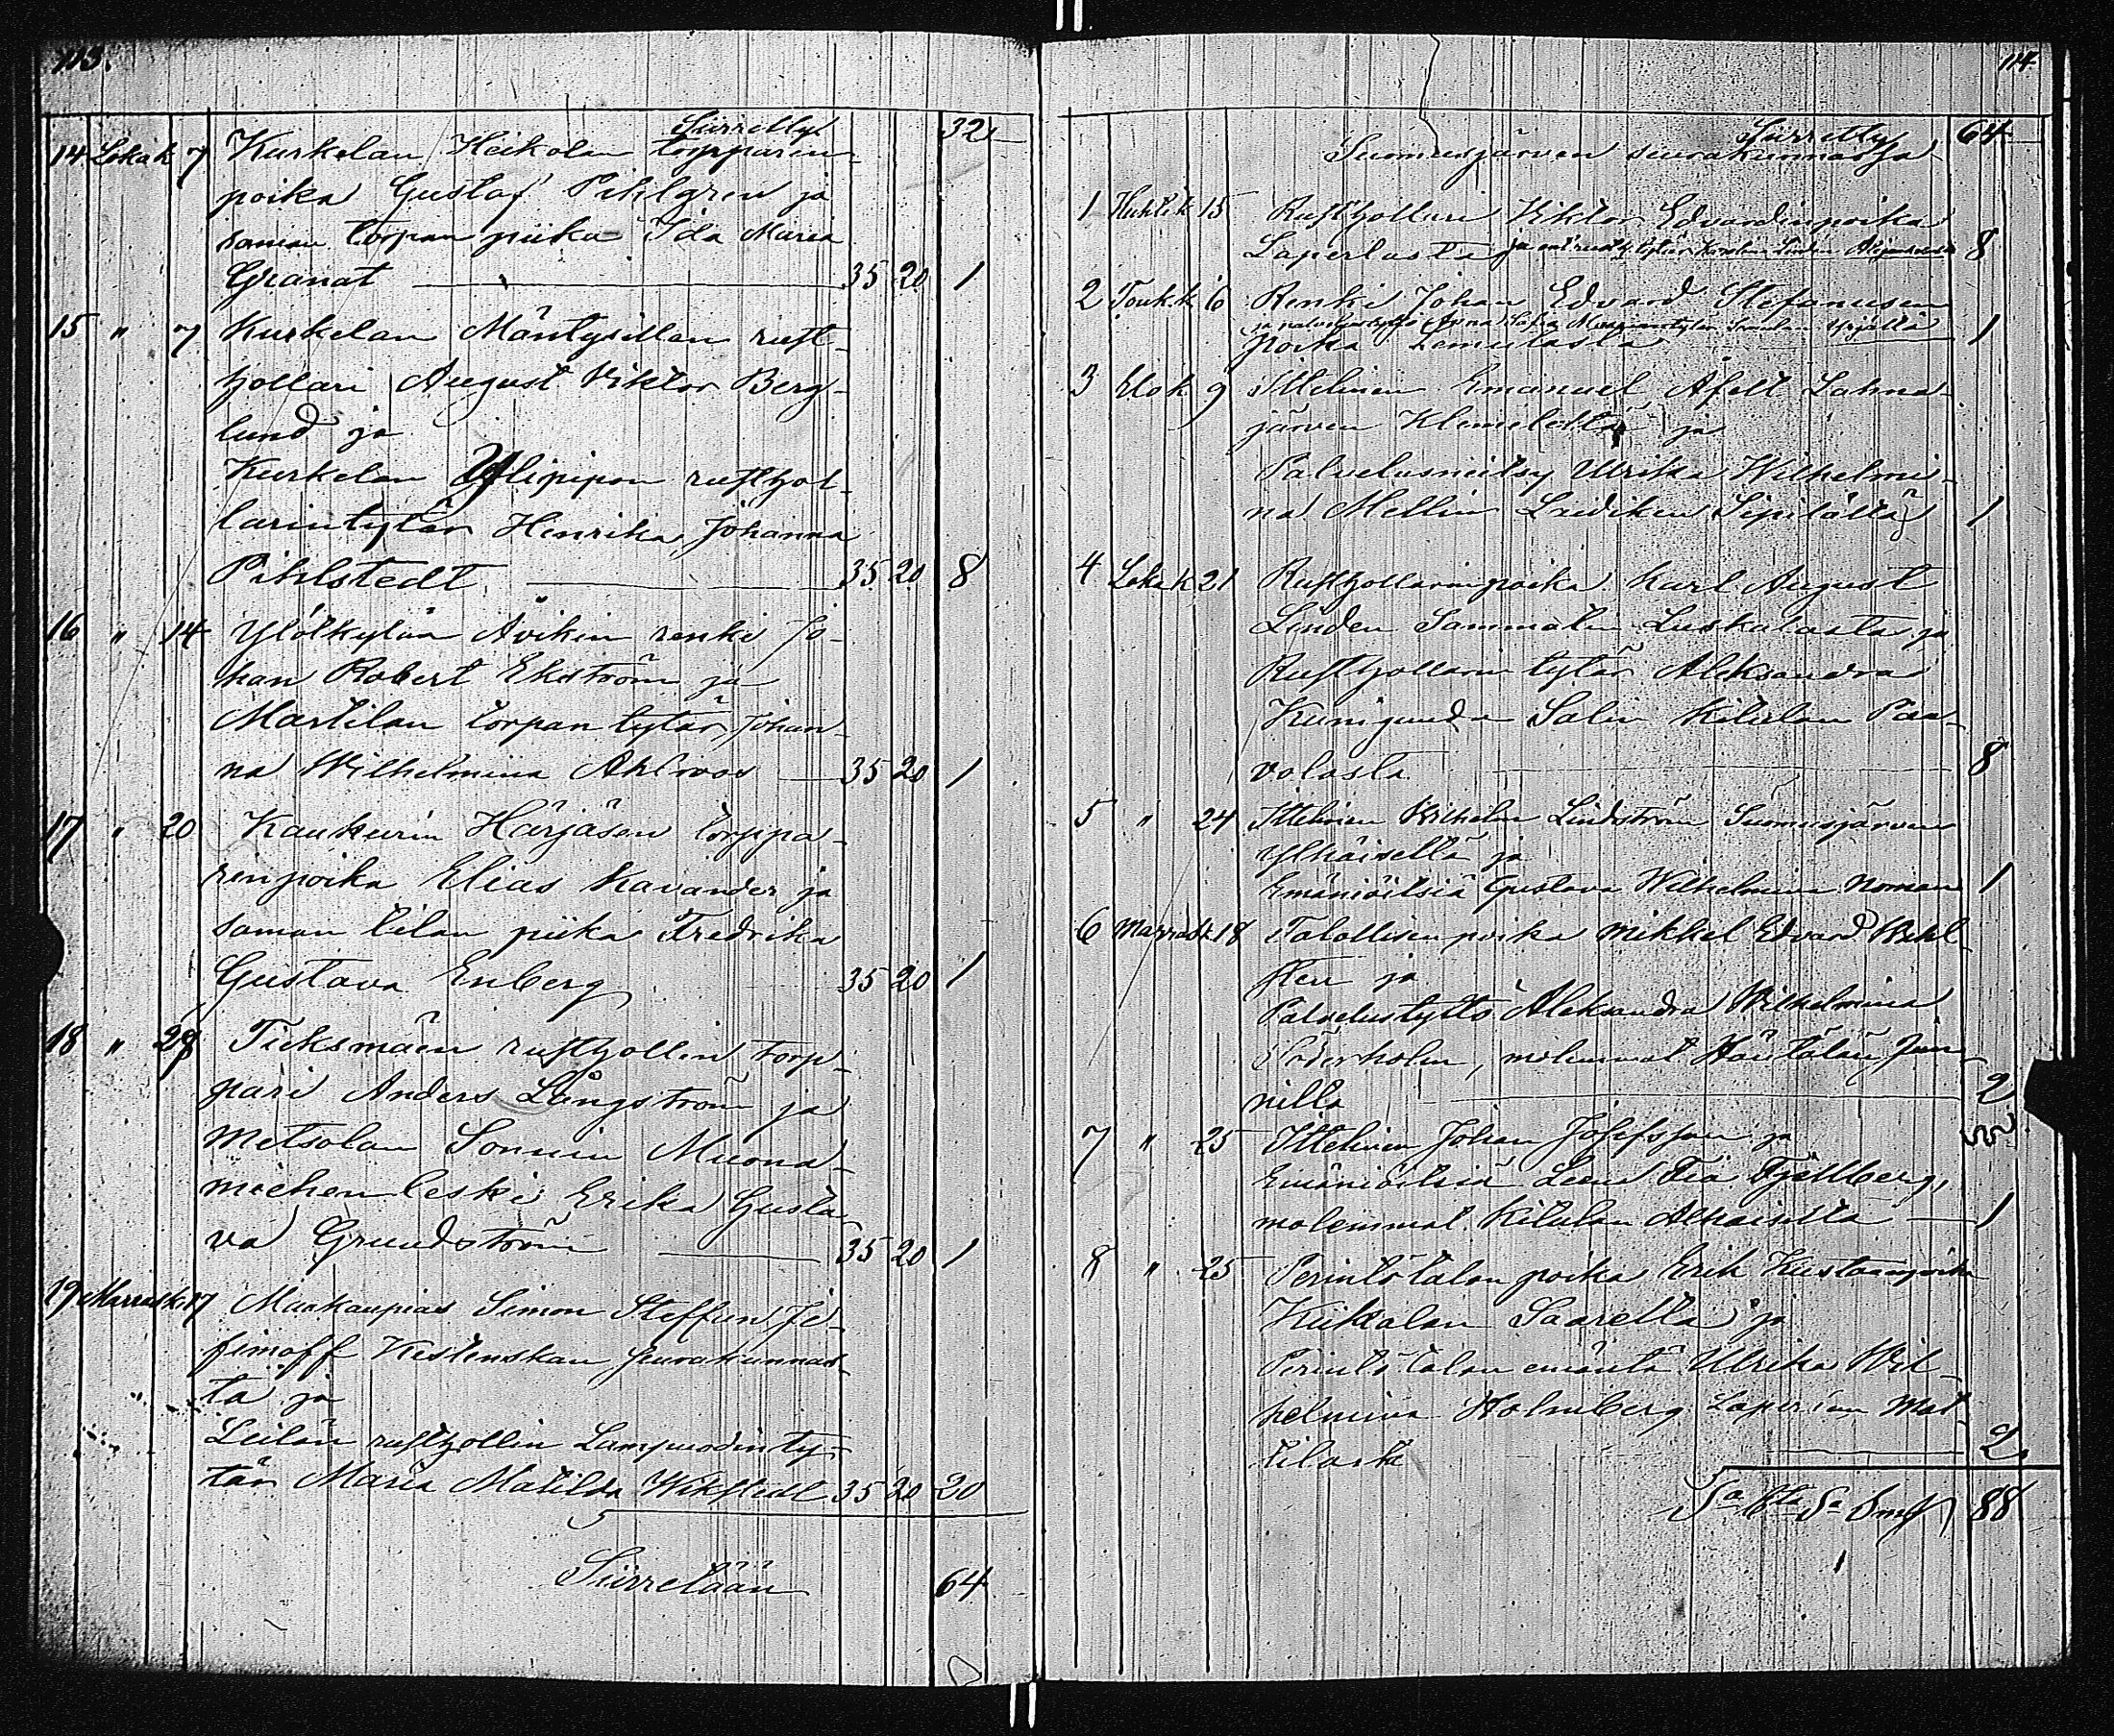 113.
Siirretty 32
14 Lokak 7 Kurkelan Heikolan torpparin-
poika Gustaf Pihlgren ja
saman torpan piika Ida Maria
Granat 35 20 1
15 " 7 Kurkelan Mäntysillan rust-
hollari August Viktor Berg-
lund ja
Kurkelan Ylipipon rusthol-
larintytär Henrika Johanna
Pihlstedt 35 20 8
16 " 14 Ylölkylän Avikin renki Jo-
han Robert Ekström ja
Martilan torpan tytär, Johan-
na Wilhelmina Ahlroos 35 20 1
17 " 20 Kaukurin Härjäsen torppa-
renpoika Elias Kavander ja
saman tilan piika Fredrika
Gustava Enberg 35 20 1
18 " 28 rusthollin torp-
pari Anders Långström ja
Metsolan Sonnin Muona-
miehen leski Erika Gusta-
va Grundström 35 20 1
19 Marrask 17 Maakaupias Simon Steffan Je-
fimoff Kestenskan seurakunnas-
ta ja
Leilän rusthollin Lampuodin ty-
tär Maria Matilda Wikstedt 35 20 20
Siirretään 64
114
Siirretty 64
Suomusjärven seurakunnassa
1 Huhtik 15 Rusthollari Viktor Edvardinpoika
Laperlasta ja 8
2 Toukk 6 Renki Johan Edvard Stefanusen
ja Anna Sofia
poika 1
3 Elok 9 Itellinen Emanuel Afelt Lahna-
järven ja
Palvelusneitsy Ulrika Wilhelmi-
na Mellin 1
4 Lokak 21 Rusthollarinpoika Karl August
Linden Sammatin Luskalasta ja
Rusthollarin tytär Aleksandra
Kunigunda Salin Kitulan Paa-
volasta 8
5 " 24 Itellinen Wilhelm Lindström Suomusjärven
Ylhäiseltä ja
Emäniöitsiä Gustava Wilhelmina Noman 1
6 Marrask 18 Talollisen poika Mikkel Edvard
ja
Palvelustyttö Aleksandra Wilhelmina
Söderholm, molemmat Häntälän
nilla 2
7 " 25 Itellinen Johan Josefsson ja
Emäniöitsiä Leena Fia Fjällberg,
molemmat Kitulan Alhaiselta 1
8 " 25 Perintötalon poika Erik Kustaanpoika
Kiikalan Saarelta ja
Perintötalon emäntä Ulrika Wil-
helmina Holmberg Laperlan Mat-
tilasta 2
88